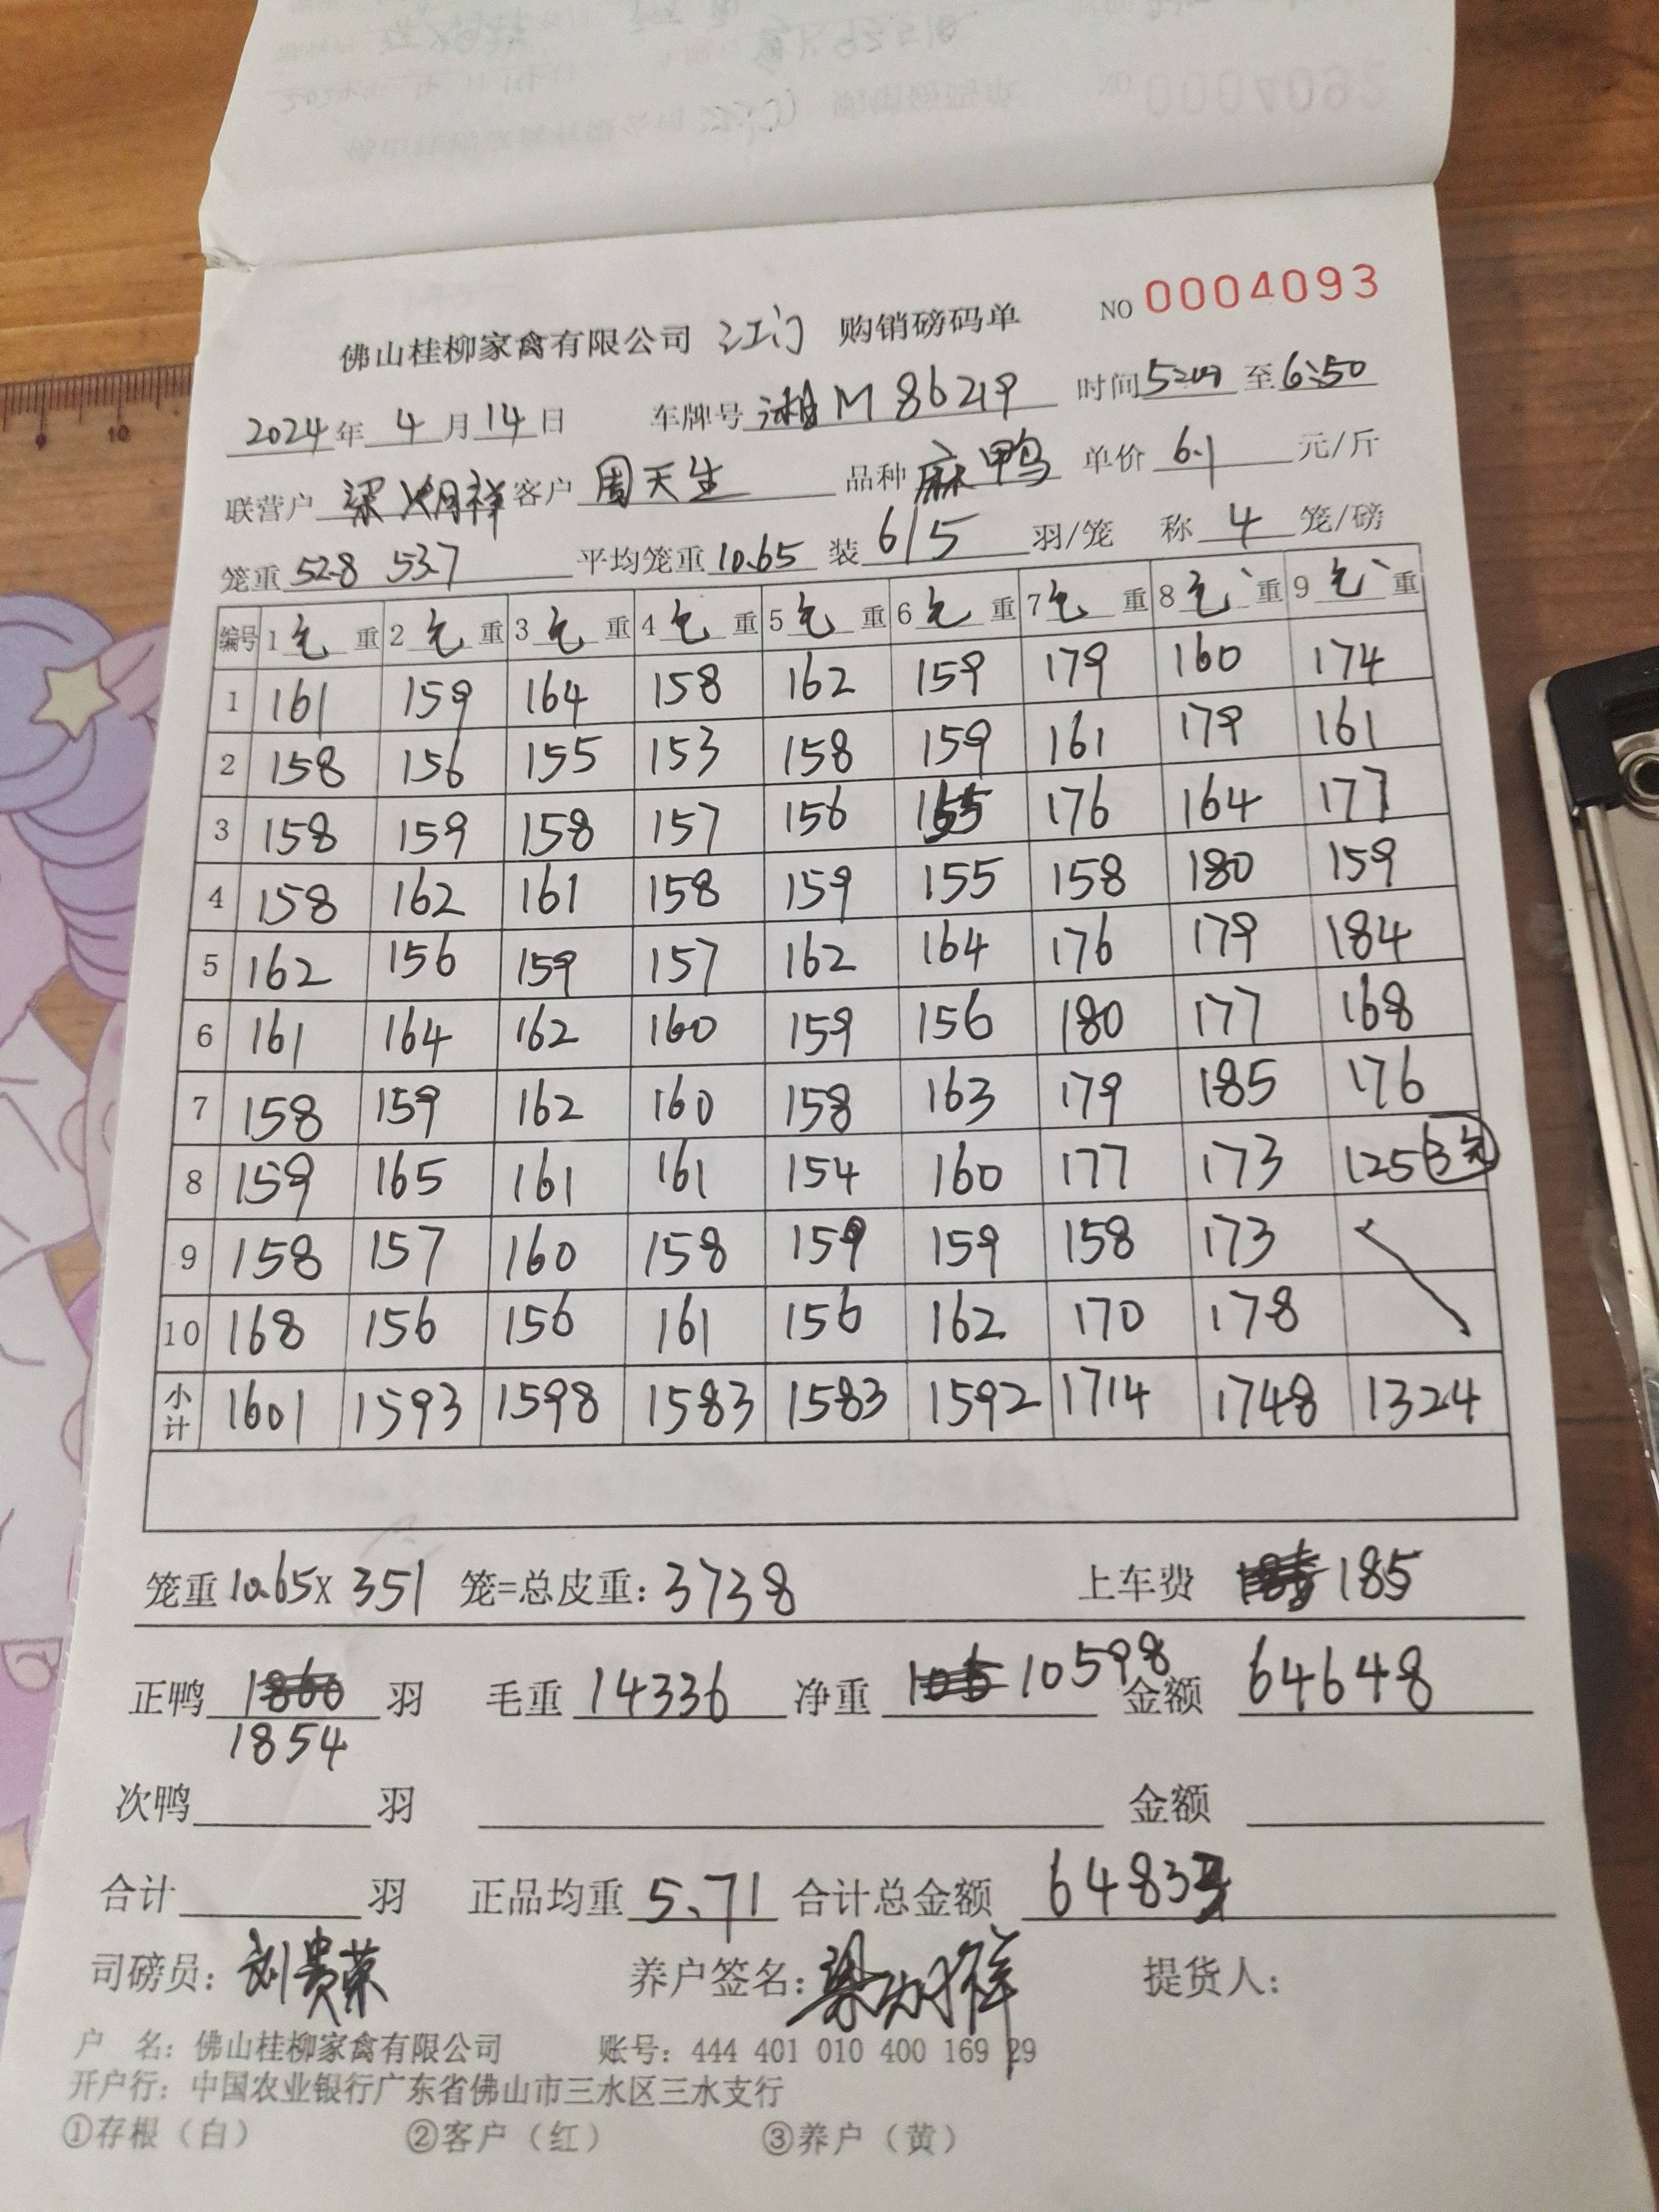 佛山桂柳家禽有限公司 江门 购销磅码单 NO 0004093
2024年 4 月 14 日 车牌号 湘M 86219 时间 至 6:50
联营户 客户 周天生 品种 麻鸭 单价 6.1 元/斤
笼重 52.8 53.7 平均笼重 10.65 装 6/5 羽/笼 称 4 笼/磅
编号 1 毛 重 2 毛 重 3 毛 重 4 毛 重 5 毛 重 6 毛 重 7 毛 重 8 毛 重 9 毛 重
1 161 159 164 158 162 159 179 160 174
2 158 156 155 153 158 159 161 179 161
3 158 159 158 157 156 155 176 164 177
4 158 162 161 158 159 155 158 180 159
5 162 156 159 157 162 164 176 179 184
6 161 164 162 160 159 156 180 177 168
7 158 159 162 160 158 163 179 185 176
8 159 165 161 161 154 160 177 173 125
9 158 157 160 158 159 159 158 173
10 168 156 156 161 156 162 170 178
小计 1601 1593 1598 1583 1583 1592 1714 1748 1324
笼重 10.65 X 351 笼=总皮重: 3738 上车费 185
正鸭 1860 羽 毛重 14336 净重 10598 金额 64648
1854
次鸭 羽 金额
合计 羽 正品均重 5.71 合计总金额 64833
司磅员: 刘贵荣 养户签名: 提货人:
户 名: 佛山桂柳家禽有限公司 账号: 444 401 010 400 169 29
开户行: 中国农业银行广东省佛山市三水区三水支行
①存根（白） ②客户（红） ③养户（黄）